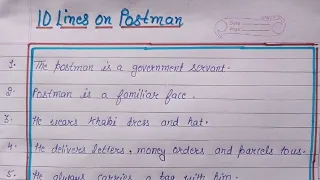 10 Lines on Postman
1. The postman is a government servant.
2. Postman is a familiar face.
3. He wears khaki dress and hat.
4. He delivers letters, money orders and parcels to us.
5. He always carries a bag with him.